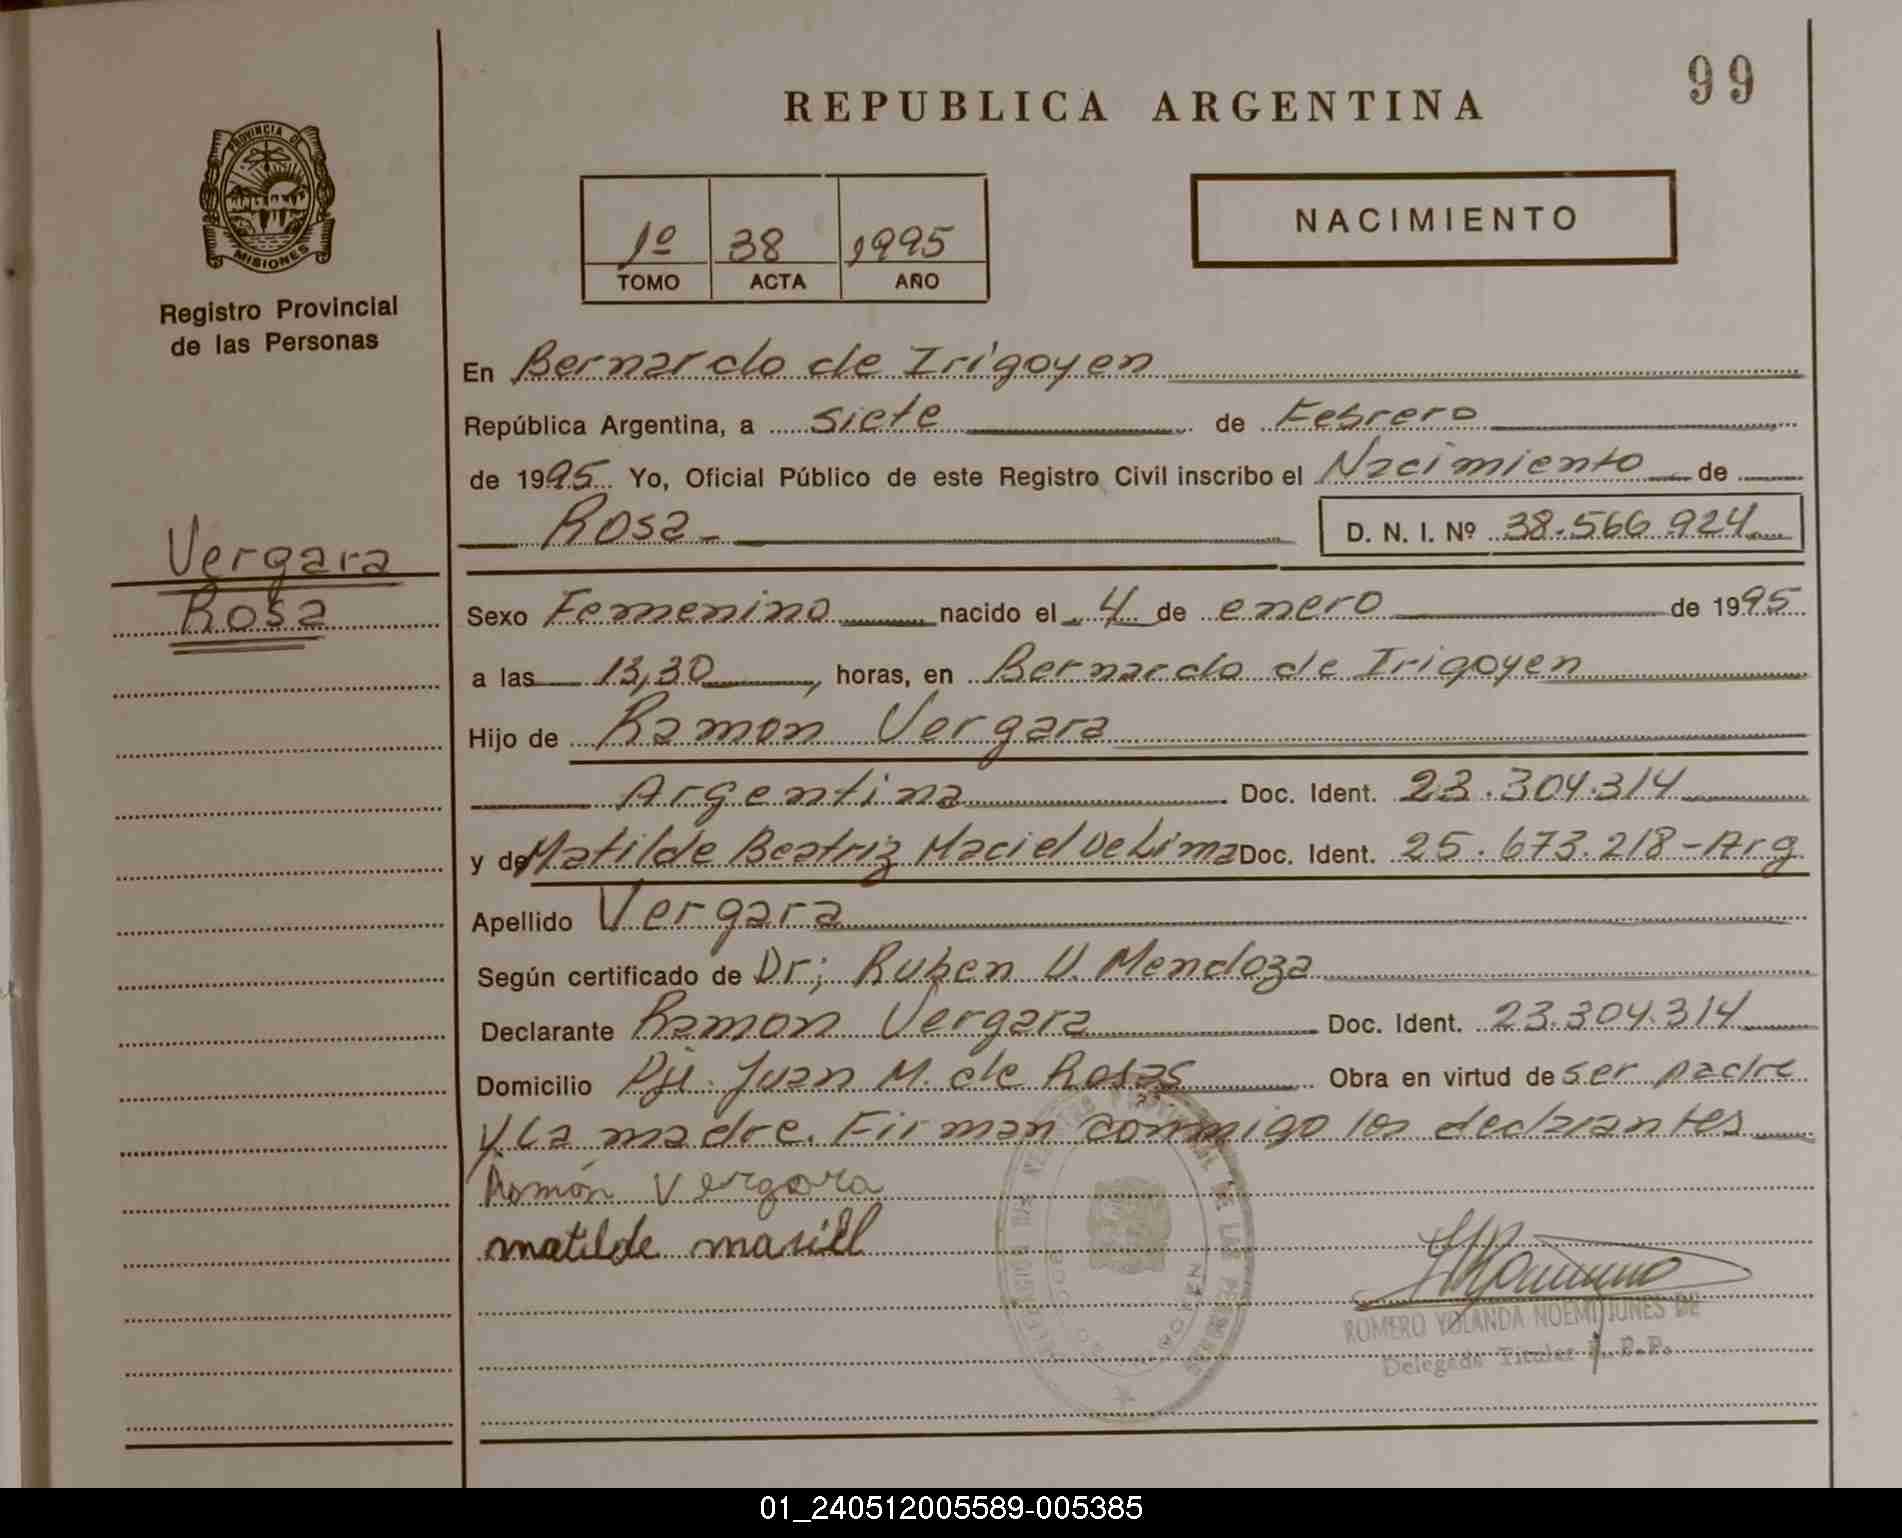 99
REPUBLICA ARGENTINA
PROVINCIA DE
MISIONES
Registro Provincial
de las Personas
1º 38 1995
TOMO ACTA AÑO
NACIMIENTO
En Bernardo de Irigoyen
República Argentina, a siete de Febrero
de 1995 Yo, Oficial Público de este Registro Civil inscribo el Nacimiento de
Rosa D. N. I. Nº 38.566.924
Vergara
Rosa
Sexo Femenino nacido el 4 de enero de 1995
a las 13,30, horas, en Bernardo de Irigoyen
Hijo de Ramón Vergara
Argentina Doc. Ident. 23.304.314
y de Matilde Beatriz Maciel De Lima Doc. Ident. 25.673.218-Arg
Apellido Vergara
Según certificado de Dr; Ruben U. Mendoza
Declarante Ramon Vergara Doc. Ident. 23.304.314
Domicilio Pje. Juan M. de Rosas Obra en virtud de ser padre
y la madre. Firman conmigo los declarantes
Ramón Vergara
matilde masiel
ROMERO YOLANDA NOEMI JUNES DE
Delegada Titular R. P. P.
01_240512005589-005385